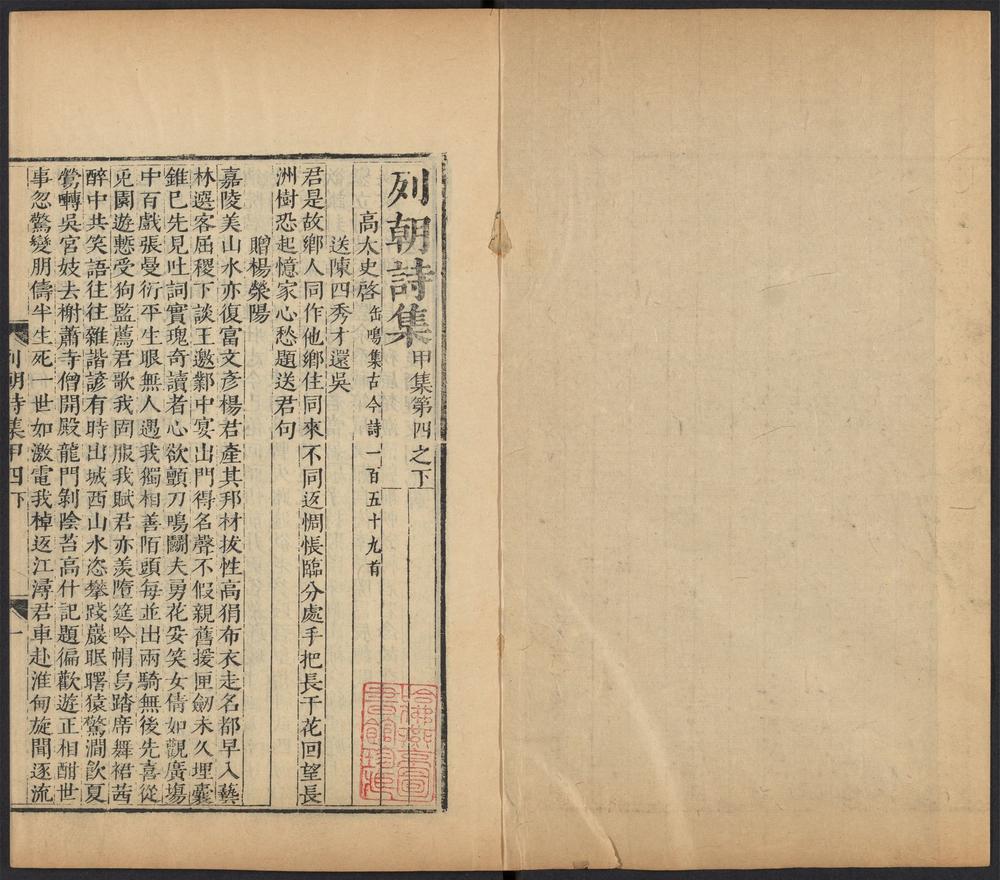 列朝詩集甲集第四之下
高太史啓缶鳴集古今詩一百五十九首
送陳四秀才還吳
君是故鄉人同作他鄉住同來不同返惆悵臨分處手把長干花回望長
洲樹恐起憶家心愁題送君句
贈楊滎陽
嘉陵美山水亦復富文彥楊君產其邦材拔性高狷布衣走名都早入藝
林選客屈稷下談王邀鄴中宴出門得名聲不假親舊援匣劒未久埋囊
錐巳先見吐詞實瑰奇讀者心欲顫刀鳴鬭夫勇花妥笑女倩如觀廣塲
中百戲張曼衍平生眼無人遇我獨相善陌頭每並出兩騎無後先喜從
兎園遊慙受狗監薦君歌我固服我賦君亦羨墮筵吟幘舄踏席舞裙茜
醉中共笑語往往雜諧諺有時出城西山水恣攀踐巖眠曙猿驚澗飮夏
鶯囀吳宮妓去榭蕭寺僧開殿龍門剝陰苔高什記題徧歡遊正相酣世
事忽驚變朋儔半生死一世如激電我棹返江潯君車赴淮甸旋聞逐流
列朝詩集甲四下
一
哈佛燕京圖
書館珍藏